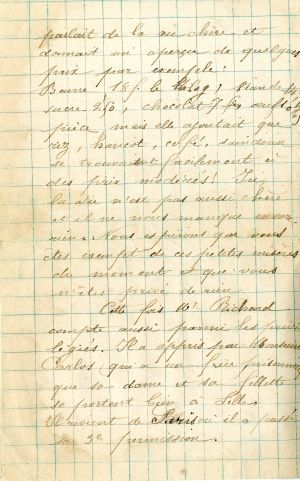 parlait de la vie chère et
donnait un aperçu de quelques
prix par exemple :
Beurre, 18f. le kilog, viande 14
sucre 2,50, chocolat 7 frs, œufs 0,
pièce mais elle ajoutait que
riz, haricot, café, saindoux
se trouvaient facilement à
des prix modérés! Ici
la vie n'est pas aussi chère
et il ne nous manque encore
rien. Nous espérons que vous
êtes exempt de ces petites misères
du moment & que vous
n'êtes privé de rien.
Cette fois Mr Richard
compte aussi parmi les privi
légiés. Il a appris par Monsieur
Carlos qui a un frère prisonnier
que sa dame et sa fillette
se portent bien à Lille.
Il revient de Paris où il a passé
sa 3e permission.